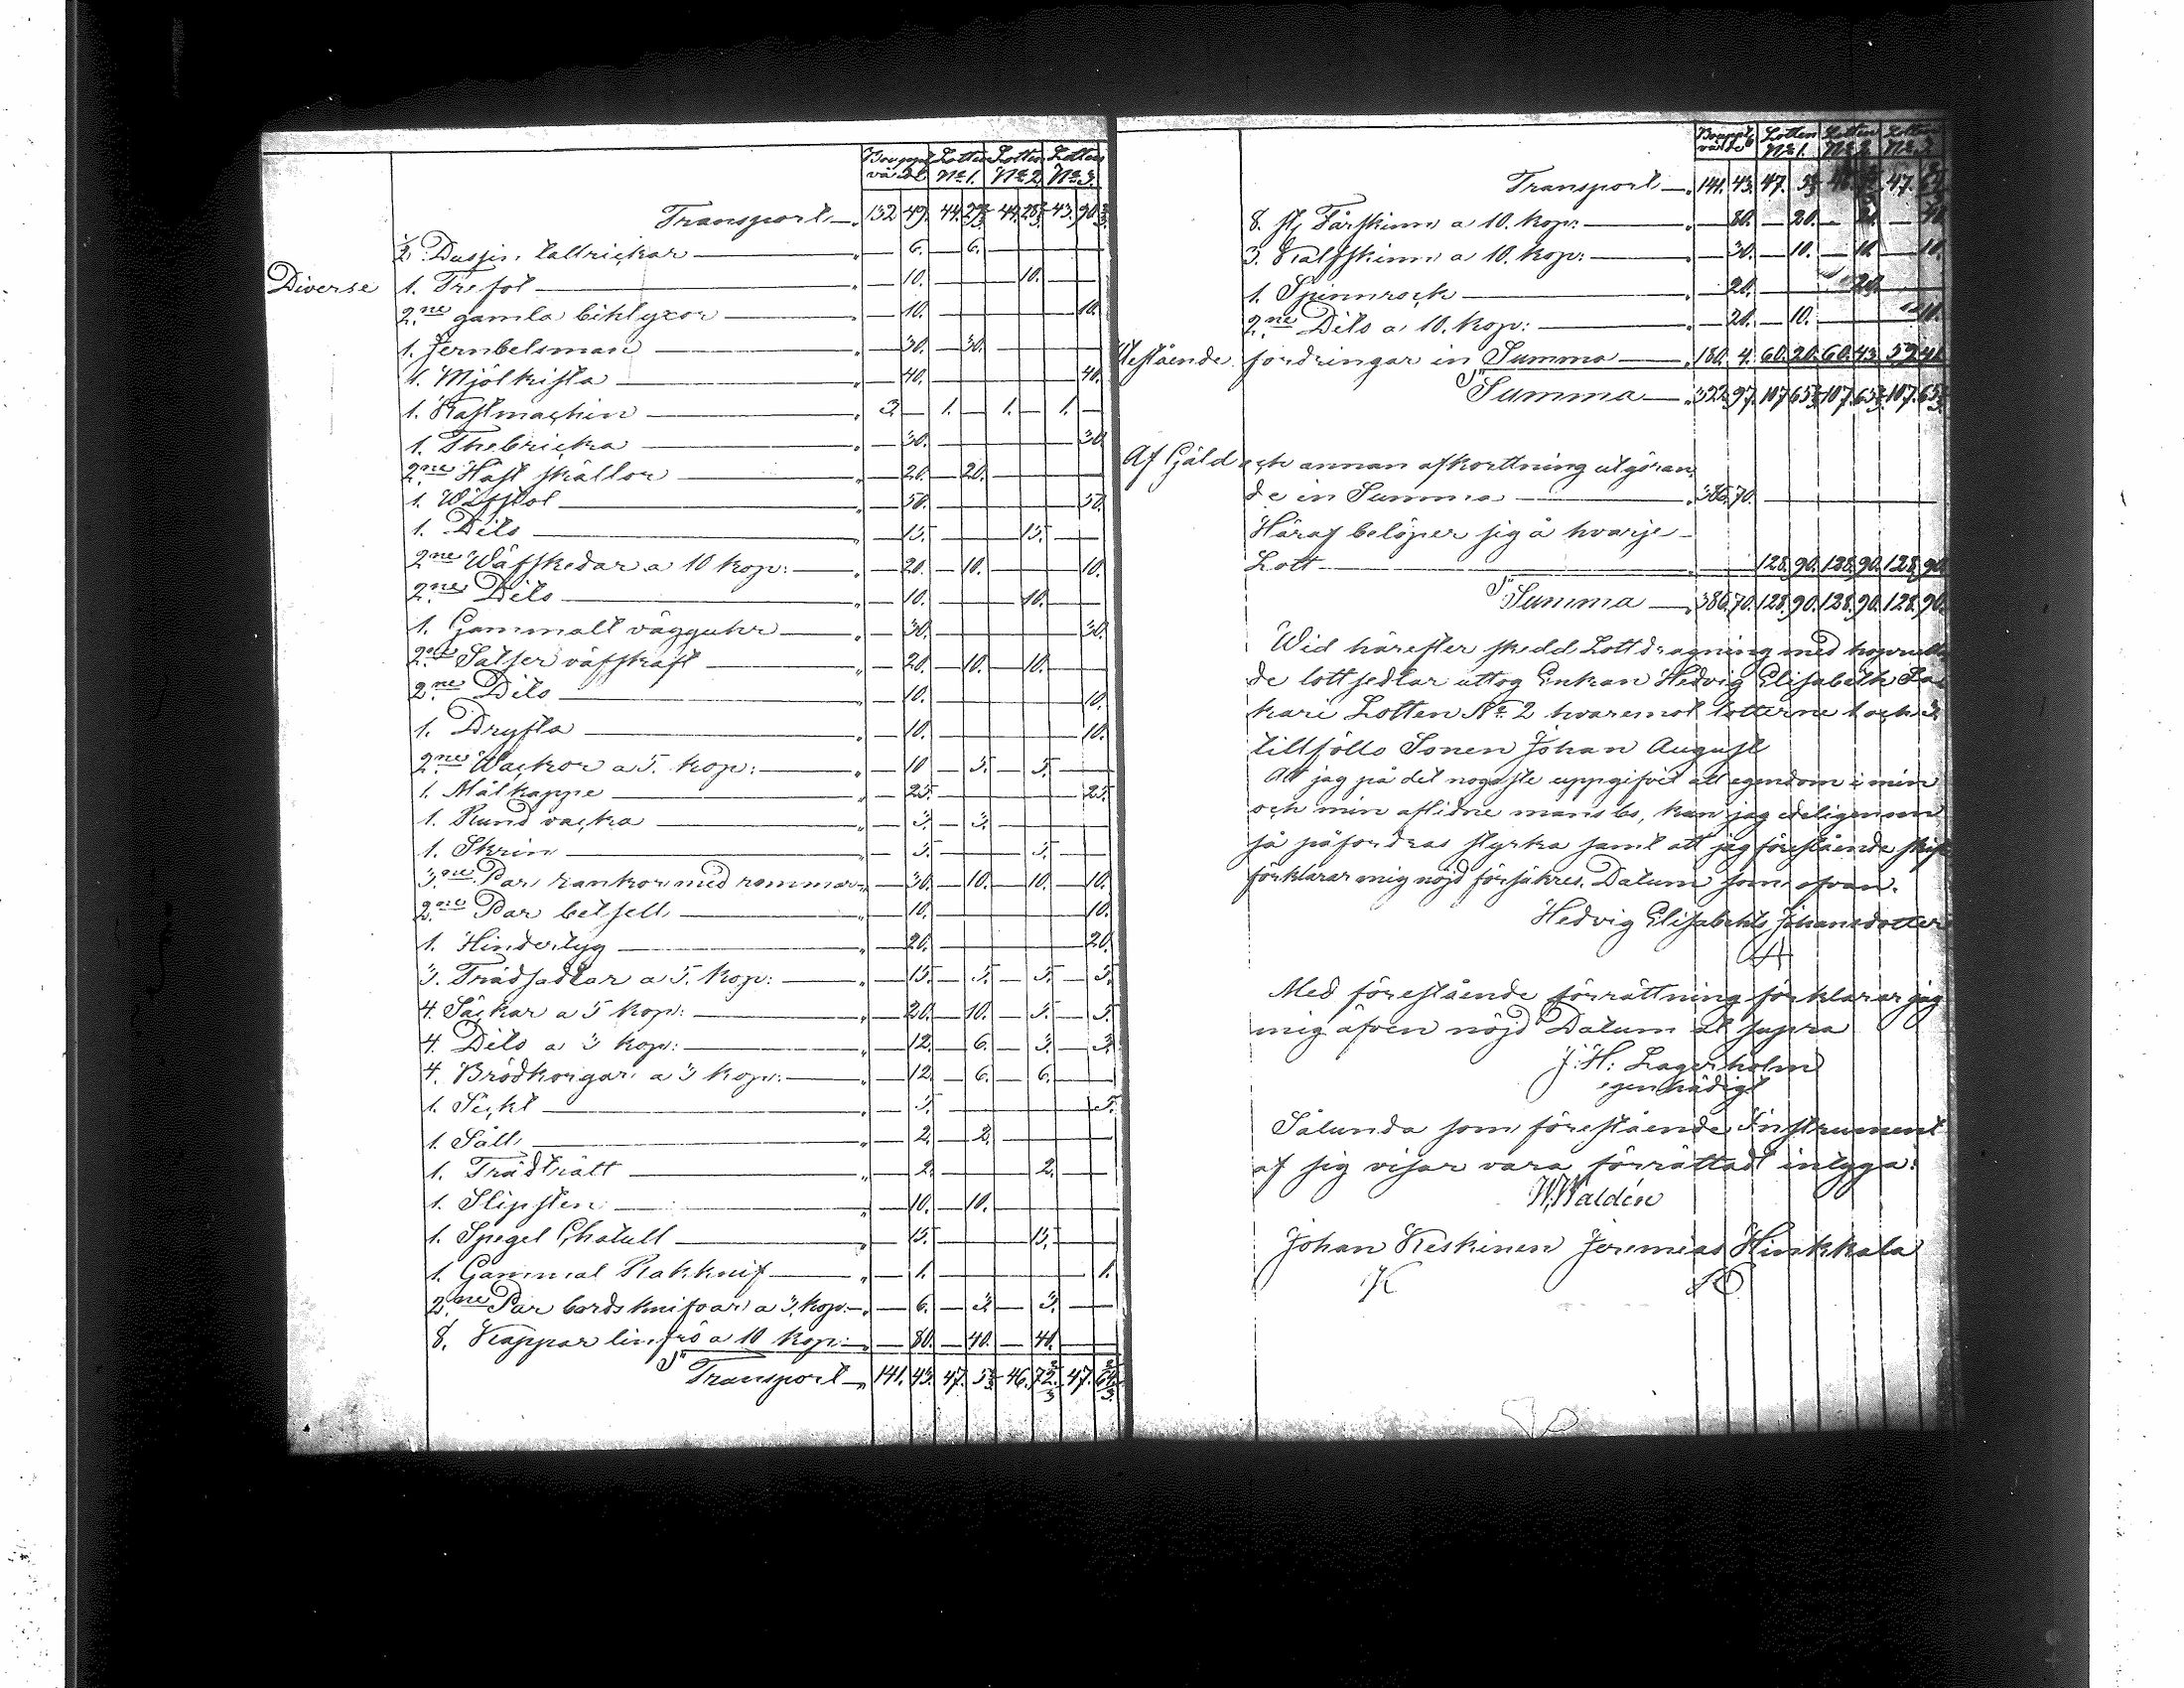 Bouppt. värde Lotten No 1. Lotten No 2 Lotten No 3.
Transport 132 49. 44. 29 2/3 44. 28 2/3 43. 90 2/3
1/2 Dussin tallrickar 6. 6.
Diverse 1. Trefot 10. 10.
2.ne gamla bihlyxor 10. 10.
1. Jernbelsman 30. 30.
1. Mjölkista 40. 40.
1. Kastmaschin 3. 1. 1. 1.
1. Thebricka 30. 30
2.ne Häst skällor 20. 20.
1. Wäfstol 50. 50.
1. Dito 15. 15.
2.ne Wäfskedar a 10 kop: 20. 10. 10.
2.ne Dito 10. 10.
1. Gammalt vägguhr 30. 30.
2.ne Satser väfskaft 20. 10. 10.
2.ne Dito 10. 10.
1. Dryfta 10. 10.
2.ne Wackor a 5. kop: 10 5. 5.
1. Målkappe 25. 25.
1. Rund vacka 3. 3.
1. Skrin 5. 5.
3.ne Par rankor med rommor 30. 10. 10. 10.
2.ne Par betsell 10. 10.
1. Hindertyg 20. 20.
3. Trädsadlar a 5. kop: 15. 5. 5. 5.
4. Säckar a 5 kop: 20. 10. 5. 5.
4. Dito a 3 kop: 12. 6. 3. 3.
4. Brödkorgar a 3 kop: 12. 6. 6.
1. Sickl 5. 5.
1. Såll 2. 2.
1. Trädtratt 2. 2.
1. Slipsten 10. 10.
1. Spegel Chatull 15. 15.
1. Gammal Rakknif 1. 1.
2.ne Par bordsknifvar a 3. kop: 6. 3. 3.
8. Kappar linfrö a 10 kop: 80. 40. 40.
Transport 141. 43. 47. 5 2/3 46. 72 2/3 47. 64 2/3
Bouppt. värde Lotten No 1. Lotten No 2 Lotten No 3
Transport 141. 43. 47. 5 2/3 47.
8. st. Fårskinn a 10. kop: 80. 20. 40.
3. Kalfskinn a 10. kop: 30. 10. 10. 10.
1. Spinnrock 20. 20.
2.ne Dito a 10. kop: 20. 10. 10.
Utestående fordringar in Summa 180. 4. 60. 20. 60. 43. 59. 41
Summa 322. 97. 107 65 2/3 107. 65 2/3 107. 65 2/3
Af Gäld och annan afkorttning utgöran
de in Summa 386. 70.
Häraf belöper sig å hvarje
Lott 128. 90. 128. 90. 128. 90.
Summa 386. 70. 128. 90. 128. 90. 128. 90.
Wid härefter skedd Lottdragning med hoprulla
de lottsedlar uttog Enkan Hedvig Elisabeth
kari Lotten No 2 hvaremot lotterne 1 och 3
tillföllo Sonen Johan August
Att jag på det nogaste uppgifvit all egendom i min
och min aflidne mans bo, kan jag edeligen om
så påfordras styrka samt att jag förestående skift
förklarar mig nöjd försäkres. Datum som ofvan.
Hedvig Elisabeth Johansdotter
Med förestående förrättning förklarar jag
mig äfven nöjd Datum ut supra
J: H: Lagerholm
egenhädigt
Sålunda som förestående Instrument
af sig visar vara förrättadt intyga:
W. Waldén
Johan Keskinen Jeremias Hinkkala